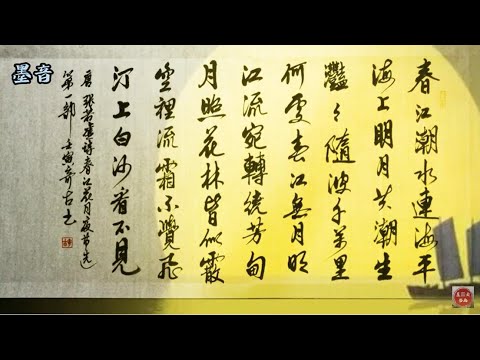 墨音
春江潮水連海平
海上明月共潮生
灩々隨波千萬里
何處春江無月明
江流宛轉繞芳甸
月照花林皆似霰
空裡流霜不覺飛
汀上白沙看不見
唐張若虛詩春江花月夜節選
第一部壬寅